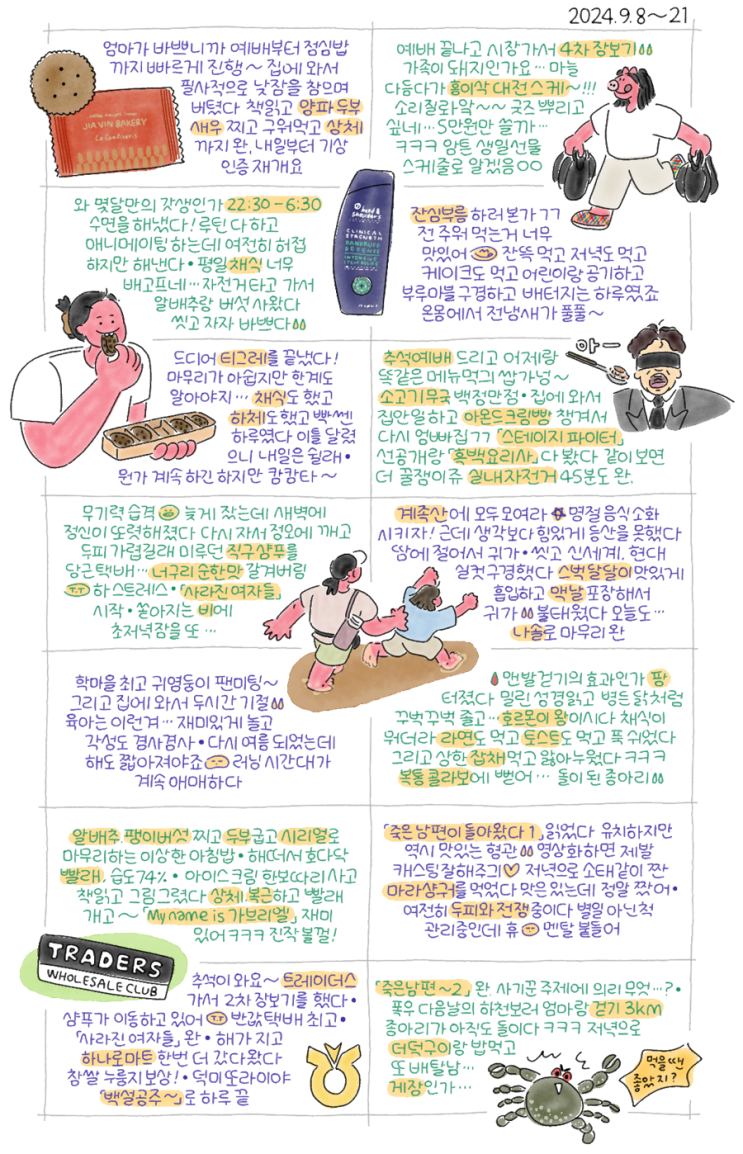 2024.9.8~21
엄마가 바쁘니까 예배부터 점심밥
까지 빠르게 진행~ 집에 와서
필사적으로 낮잠을 참으며
버텼다 책읽고 양파 두부
새우 찌고 구워먹고 상체
까지 완. 내일부터 기상
인증 재개요
JIA VIN BAKERY
와 몇달만의 갓생인가 22:30-6:30
수면을 해냈다! 루틴 다 하고
애니메이팅 하는데 여전히 허접
하지만 해낸다 • 평일 채식 너무
배고프네… 자전거타고 가서
알배추랑 버섯 사왔다
씻고 자자 바쁘다
head &
shoulders
CLINICAL
STRENGTH
DANDRUFF
DEFENSE
INTENSIVE
드디어 티그레를 끝냈다!
마무리가 아쉽지만 한계도
알아야지… 채식도 했고
하체도 했고 빡쎈
하루였다 이틀 달렸
으니 내일은 쉴래 •
뭔가 계속 하긴 하지만 캄캄타~
무기력 습격 늦게 잤는데 새벽에
정신이 또렷해졌다 다시 자서 정오에 깨고
두피 가렵길래 미루던 직구샴푸를
당근택배… 너구리 순한맛 갈겨버림
T.T 하 스트레스 • 「사라진 여자들」
시작 • 쏟아지는 비에
초저녁잠을 또…
학마을 최고 귀염둥이 팬미팅~
그리고 집에 와서 두시간 기절
육아는 이런겨… 재미있게 놀고
각성도 겸사겸사 • 다시 여름 되었는데
해도 짧아져야죠 러닝 시간대가
계속 애매하다
알배추.팽이버섯 찌고 두부굽고 시리얼로
마무리하는 이상한 아침밥 • 해떠서 호다닥
빨래. 습도 74% • 아이스크림 한보따리 사고
책읽고 그림그렸다 상체.복근하고 빨래
개고~ 「My name is 가브리엘」 재미
있어 ㅋㅋㅋ 진작 볼껄!
TRADERS
WHOLESALE CLUB
추석이 와요~ 트레이더스
가서 2차 장보기를 했다 •
샴푸가 이동하고 있어 T.T 반값택배 최고 •
「사라진 여자들」 완 • 해가 지고
하나로마트 한번 더 갔다왔다
찹쌀 누룽지 보상! • 덕미 또라이야
「백설공주~」로 하루 끝
예배 끝나고 시장가서 4차 장보기
가족이 돼지인가요… 마늘
다듬다가 홍이삭 대전 스케~!!!
소리질러 악~~ 굿즈 뿌리고
싶네… 5만원만 쓸까…
ㅋㅋㅋ 암튼 생일선물
스케줄로 알겠음ㅇㅇ
잔심부름 하러 본가 ㄱㄱ
전 주워 먹는거 너무
맛있어 잔뜩 먹고 저녁도 먹고
케이크도 먹고 어린이랑 공기하고
부루마블 구경하고 배터지는 하루였죠
온몸에서 전냄새가 풀풀~
아-
추석예배 드리고 어제랑
똑같은 메뉴먹긔 쌉가넝~
소고기무국 백점만점 • 집에 와서
집안일하고 아몬드크림빵 챙겨서
다시 엄빠집 ㄱㄱ 「스테이지 파이터」
선공개랑 「흑백요리사」 다 봤다 같이 보면
더 꿀잼이쥬 실내자전거 45분도 완.
계족산에 모두모여라 명절음식 소화
시키자! 근데 생각보다 힘있게 등산을 못했다
땀에 절어서 귀가 • 씻고 신세계. 현대
실컷 구경했다 스벅달달이 맛있게
흡입하고 맥날 포장해서
귀가 불태웠다 오늘도…
나솔로 마무리 완
맨발걷기의 효과인가 팡
터졌다 밀린 성경읽고 병든 닭처럼
꾸벅꾸벅 졸고… 호르몬이 왕이시다 채식이
뭐더라 라면도 먹고 토스트도 먹고 푹 쉬었다
그리고 상한 잡채먹고 앓아누웠다 ㅋㅋㅋ
복통 콜라보에 뻗어… 돌이 된 종아리
「죽은 남편이 돌아왔다 1」 읽었다 유치하지만
역시 맛있는 형관 영상화하면 제발
캐스팅 잘해주긔♡ 저녁으로 소태같이 짠
마라샹궈를 먹었다 맛은 있는데 정말 짰어 •
여전히 두피와 전쟁중이다 별일 아닌척
관리중인데 휴 멘탈 붙들어
「죽은남편~2」 완. 사기꾼 주제에 의리 무엇…? •
폭우 다음날의 하천보러 엄마랑 걷기 3km
종아리가 아직도 돌이다 ㅋㅋㅋ 저녁으로
더덕구이랑 밥먹고
또 배탈남…
게장인가…
먹을땐
좋았지?